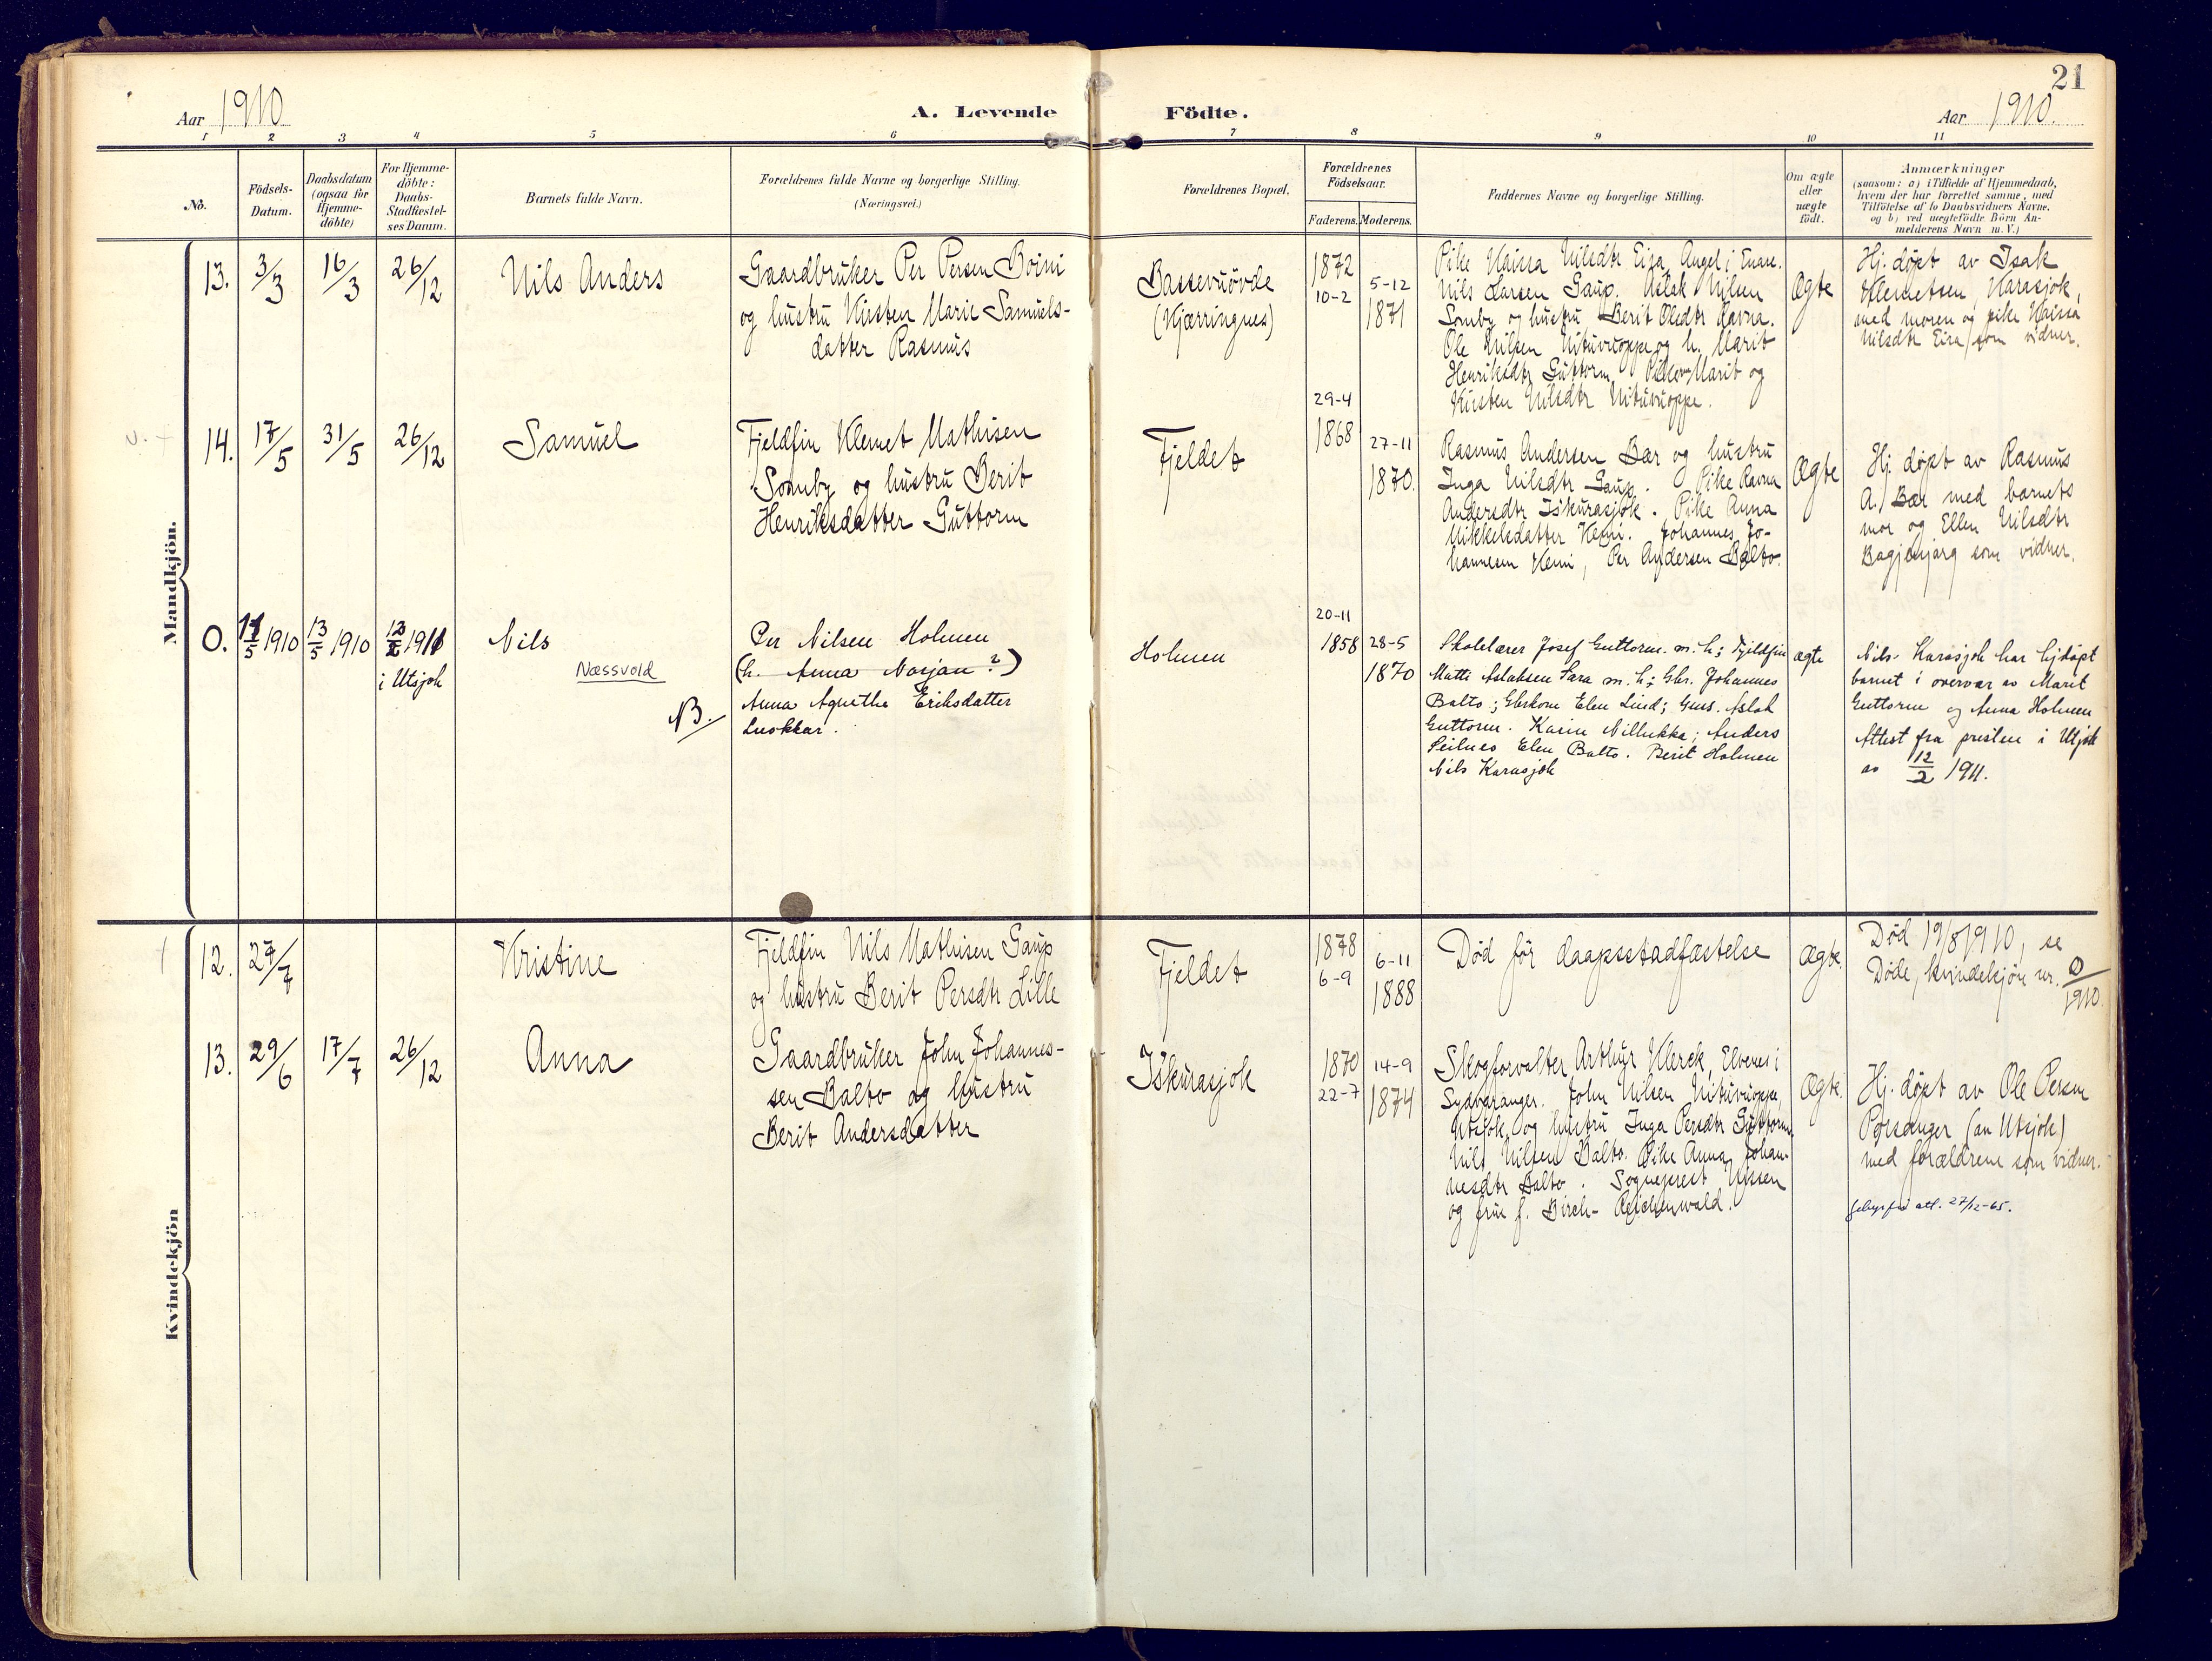 21
Aar 1910
A. Levende Födte.
Aar 1910.
1 2 3 4 5 6 7 8 9 10 11
No.
Födsels-
Datum.
Daabsdatum
(ogsaa for
Hjemme-
döbte)
For Hjemme-
döbte:
Daabs-
Stadfæstel-
ses Datum.
Barnets fulde Navn.
Forældrenes fulde Navne og borgerlige Stilling.
(Næringsvei.)
Forældrenes Bopæl.
Forældrenes
Födselsaar.
Faderens. Moderens.
Faddernes Navne og borgerlige Stilling.
Om ægte
eller
uægte
födt.
Anmærkninger
(saasom: a) i Tilfælde af Hjemmedaab,
hvem der har forrettet samme, med
Tilföielse af to Daabsvidners Navne,
og b) ved uægtefödte Börn An-
melderens Navn m. V.)
Mandkjön.
13. 3/3 16/3 26/12 Nils Anders
Gaardbruker Per Persen Boini
og hustru Kirsten Marie Samuels-
datter Rasmus
Bassevuovde
(Kjærringnes)
1872
10-2
5-12
1871
Pike Kaissa Nilsdtr Eira, Angel i Enare.
Nils Larsen Gaup. Aslak Nilsen
Somby og hustru Berit Olsdtr Ravna.
Ole Nilsen Nituvuoppe og h. Marit
Henriksdtr Guttorm. Pikene Marit og
Kirsten Nilsdtr Nituvuoppe.
Ægte
Hj. døpt av Isak
Klemetsen, Karasjok,
med moren og pike Kaissa
Nilsdtr Eira som vidner.
14. 17/5 31/5 26/12 Samuel
Fjeldfin Klemet Mathisen
Somby og hustru Berit
Henriksdatter Guttorm
Fjeldet
29-4
1868
27-11
1870.
Rasmus Andersen Bær og hustru
Inga Nilsdtr Gaup. Pike Ravna
Andersdtr Iskurasjok. Pike Anna
Mikkelsdatter Kemi. Johannes Jo-
hannesen Kemi, Per Andersen Balto.
Ægte
Hj. døpt av Rasmus
A. Bær med barnets
mor og Ellen Nilsdtr
Bagjenjarg som vidner.
0. 11/5 1910 13/5 1910 12/2 1911
i Utsjok
Nils
Næssvold
NB.
Per Nilsen Holmen
(h. Anna Norjan?)
Anna Agnethe Eriksdatter
Luokkar.
Holmen
20-11
1858
28-5
1870
Skolelærer Josef Guttorm m. h; Fjeldfin
Matti Aslaksen Sara m. h; Gbr. Johannes
Balto; Gbrkone Elen Lind; Gaus. Aslak
Guttorm. Karin Nillukka; Anders
Seilnes Elen Balto. Berit Holmen
Nils Karasjok
ægte
Nils Karasjok har hjdøpt
barnet i overvær av Marit
Guttorm og Anna Holmen
Attest fra presten i Utsjok
av 12/2 1911.
Kvindekjön
12. 27/7 Kristine
Fjeldfin Nils Mathisen Gaup
og hustru Berit Persdtr Lille
Fjeldet
1878
6-9
6-11
1888
Død før daapsstadfæstelse
Ægte.
Død 19/8 1910, se
Døde, kvindekjøn nr. 0/1910.
13. 29/6 17/7 26/12 Anna
Gaardbruker John Johannes-
sen Balto og hustru
Berit Andersdatter
Iskurasjok
1870
22-7
14-9
1874
Skogforvalter Arthur Klerck, Elvenes i
Sydvaranger. John Nilsen Nituvuoppe,
Utsjok, og hustru Inga Persdtr Guttorm.
Nils Nilsen Balto. Pike Anna Johan-
nesdtr Balto. Sogneprest Nissen
og frue f. Birch-Reichenwald.
Ægte.
Hj. døpt av Ole Persen
Porsanger (au Utsjok)
med forældrene som vidner.
att. 27/12-65.